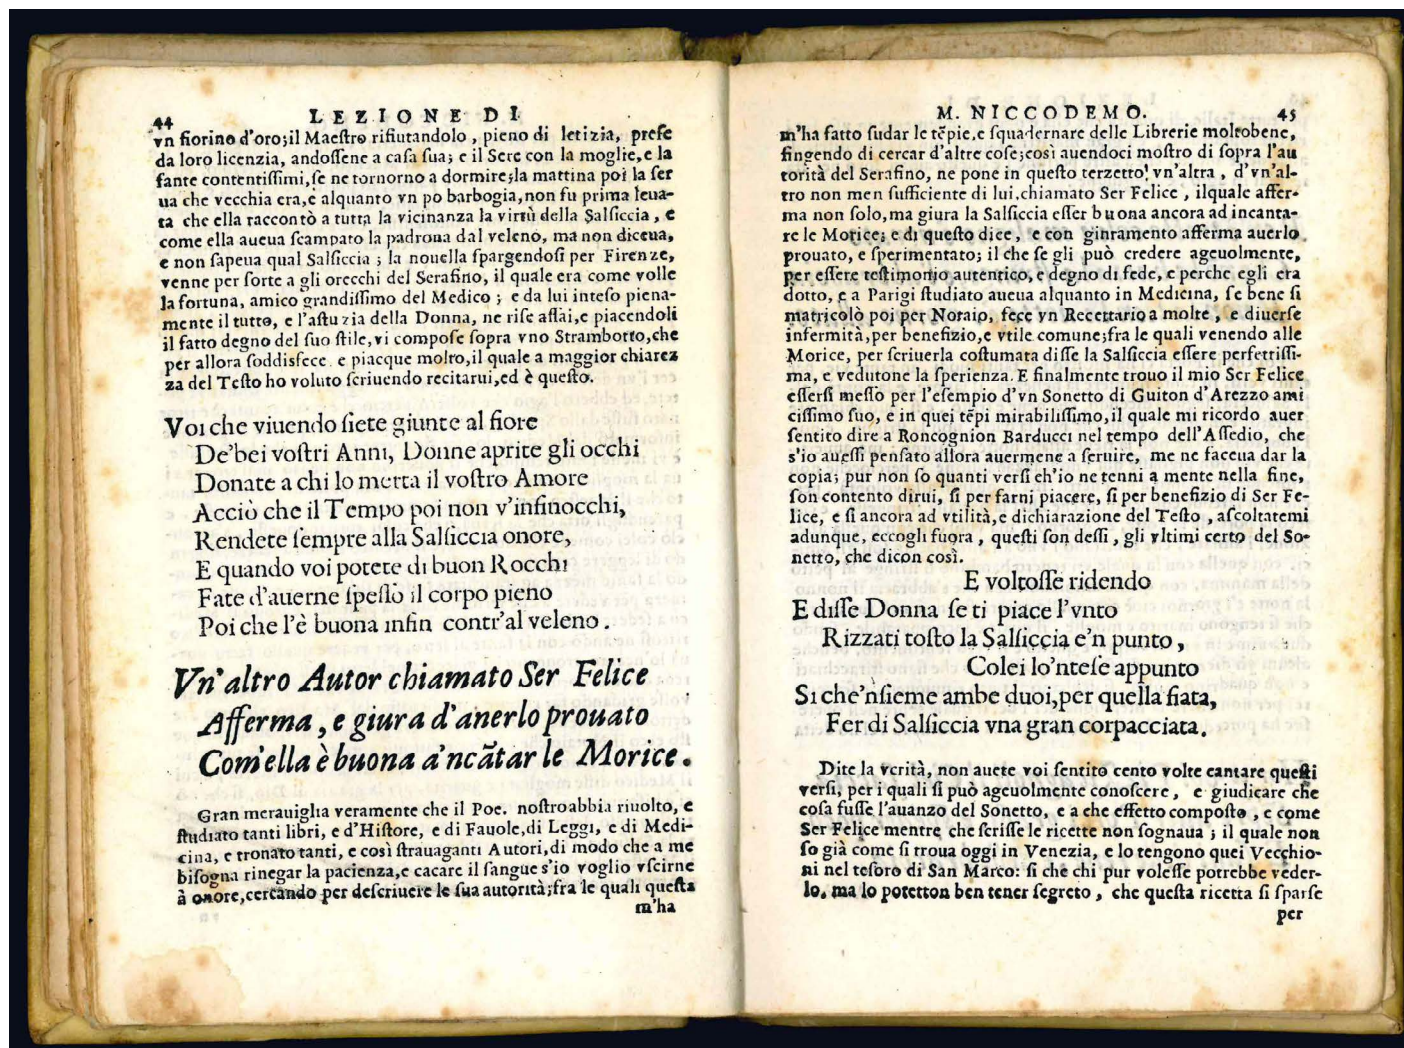 44 LEZIONE DI
vn fiorino d'oro;il Maeſtro rifiutandolo , pieno di letizia, preſe
da loro licenzia, andoſſene a caſa ſua; e il Sere con la moglie,e la
fante contentiſſimi,ſe ne tornorno a dormire;la mattina poi la ſer
ua che vecchia era,e alquanto vn po barbogia,non fu prima leua-
ta che ella raccontò a tutta la vicinanza la virtù della Salſiccia , e
come ella aueua ſcampato la padrona dal veleno, ma non diceua,
e non ſapeua qual Salſiccia ; la nouella ſpargendoſi per Firenze,
venne per ſorte a gli orecchi del Serafino, il quale era come volle
la fortuna, amico grandiſſimo del Medico ; e da lui inteſo piena-
mente il tutto, e l'aſtuzia della Donna, ne riſe aſſai,e piacendoli
il fatto degno del ſuo ſtile,vi compoſe ſopra vno Strambotto,che
per allora ſoddisfece. e piacque molto,il quale a maggior chiarez
za del Teſto ho voluto ſcriuendo recitarui,ed è queſto.
Voi che viuendo ſiete giunte al fiore
De'bei voſtri Anni, Donne aprite gli occhi
Donate a chi lo merta il voſtro Amore
Acciò che il Tempo poi non v'infinocchi,
Rendete ſempre alla Salſiccia onore,
E quando voi potete di buon Rocchi
Fate d'auerne ſpeſſo il corpo pieno
Poi che l'è buona inſin contr'al veleno.
Vn'altro Autor chiamato Ser Felice
Afferma, e giura d'auerlo prouato
Com'ella è buona a'ncãtar le Morice.
Gran merauiglia veramente che il Poe. noſtro abbia riuolto, e
ſtudiato tanti libri, e d'Hiſtore, e di Fauole,di Leggi, e di Medi-
cina, e tronato tanti, e così ſtrauaganti Autori,di modo che a me
biſogna rinegar la pacienza,e cacare il ſangue s'io voglio vſcirne
à onore,cercando per deſcriuere le ſua autorità;fra le quali queſta
m'ha
M. NICCODEMO. 45
m'ha fatto ſudar le tẽpie,e ſquadernare delle Librerie moltobene,
fingendo di cercar d'altre coſe;così auendoci moſtro di ſopra l'au
torità del Serafino, ne pone in queſto terzetto! vn'altra , d'vn'al-
tro non men ſufficiente di lui,chiamato Ser Felice , ilquale affer-
ma non ſolo,ma giura la Salſiccia eſſer buona ancora ad incanta-
re le Morice; e di queſto dice , e con ginramento afferma auerlo
prouato, e ſperimentato; il che ſe gli può credere ageuolmente,
per eſſere teſtimonio autentico, e degno di fede, e perche egli era
dotto, e a Parigi ſtudiato aueua alquanto in Medicina, ſe bene ſi
matricolò poi per Notaio, fece vn Recettario a molte , e diuerſe
infermità,per benefizio,e vtile comune;fra le quali venendo alle
Morice, per ſcriuerla coſtumata diſſe la Salſiccia eſſere perfettiſſi-
ma, e vedutone la ſperienza. E finalmente trouo il mio Ser Felice
eſſerſi meſſo per l'eſempio d'vn Sonetto di Guiton d'Arezzo ami
ciſſimo ſuo, e in quei tẽpi mirabiliſſimo,il quale mi ricordo auer
ſentito dire a Roncognion Barducci nel tempo dell'Aſſedio, che
s'io aueſſi penſato allora auermene a ſeruire, me ne faceua dar la
copia; pur non ſo quanti verſi ch'io ne tenni a mente nella fine,
ſon contento dirui, ſi per farni piacere, ſi per benefizio di Ser Fe-
lice, e ſi ancora ad vtilità,e dichiarazione del Teſto , aſcoltatemi
adunque, eccogli fuora , queſti ſon deſſi , gli vltimi certo del So-
netto, che dicon così.
E voltoſſe ridendo
E diſſe Donna ſe ti piace l'vnto
Rizzati toſto la Salſiccia e'n punto,
Colei lo'nteſe appunto
Si che'nſieme ambe duoi,per quella fiata,
Fer di Salſiccia vna gran corpacciata.
Dite la verità, non auete voi ſentito cento volte cantare queſti
verſi, per i quali ſi può ageuolmente conoſcere , e giudicare che
coſa fuſſe l'auanzo del Sonetto, e a che effetto compoſto , e come
Ser Felice mentre che ſcriſſe le ricette non ſognaua ; il quale non
ſo già come ſi troua oggi in Venezia, e lo tengono quei Vecchio-
ni nel teſoro di San Marco: ſi che chi pur voleſſe potrebbe veder-
lo, ma lo potetton ben tener ſegreto , che queſta ricetta ſi ſparſe
per